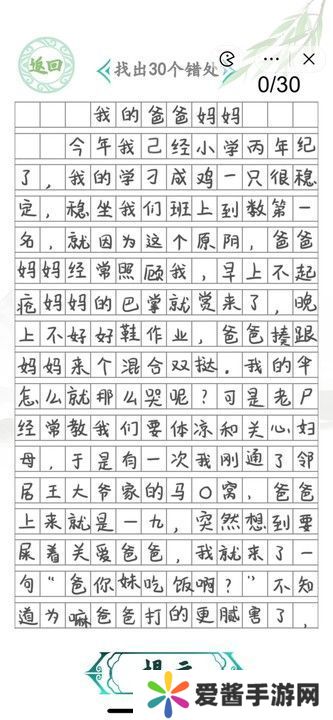 返回
找出30个错处
0/30
我的爸爸妈妈
今年我己经小学丙年纪
了，我的学刁成鸡一只很稳
定，稳坐我们班上到数第一
名，就因为这个原阴，爸爸
妈妈经常照顾我，早上不起
疮妈妈的巴掌就觉来了，晚
上不好好鞋作业，爸爸揍跟
妈妈来个混合双挞。我的伞
怎么就那么哭呢？可是老尸
经常教我们要体凉和关心妇
母，于是有一次我刚通了邻
居王大爷家的马〇窝，爸爸
上来就是一九，突然想到要
尿着关爱爸爸，我就来了一
句“爸你妹吃饭啊？”不知
道为嘛爸爸打的更腻害了，
提示
爱酱手游网